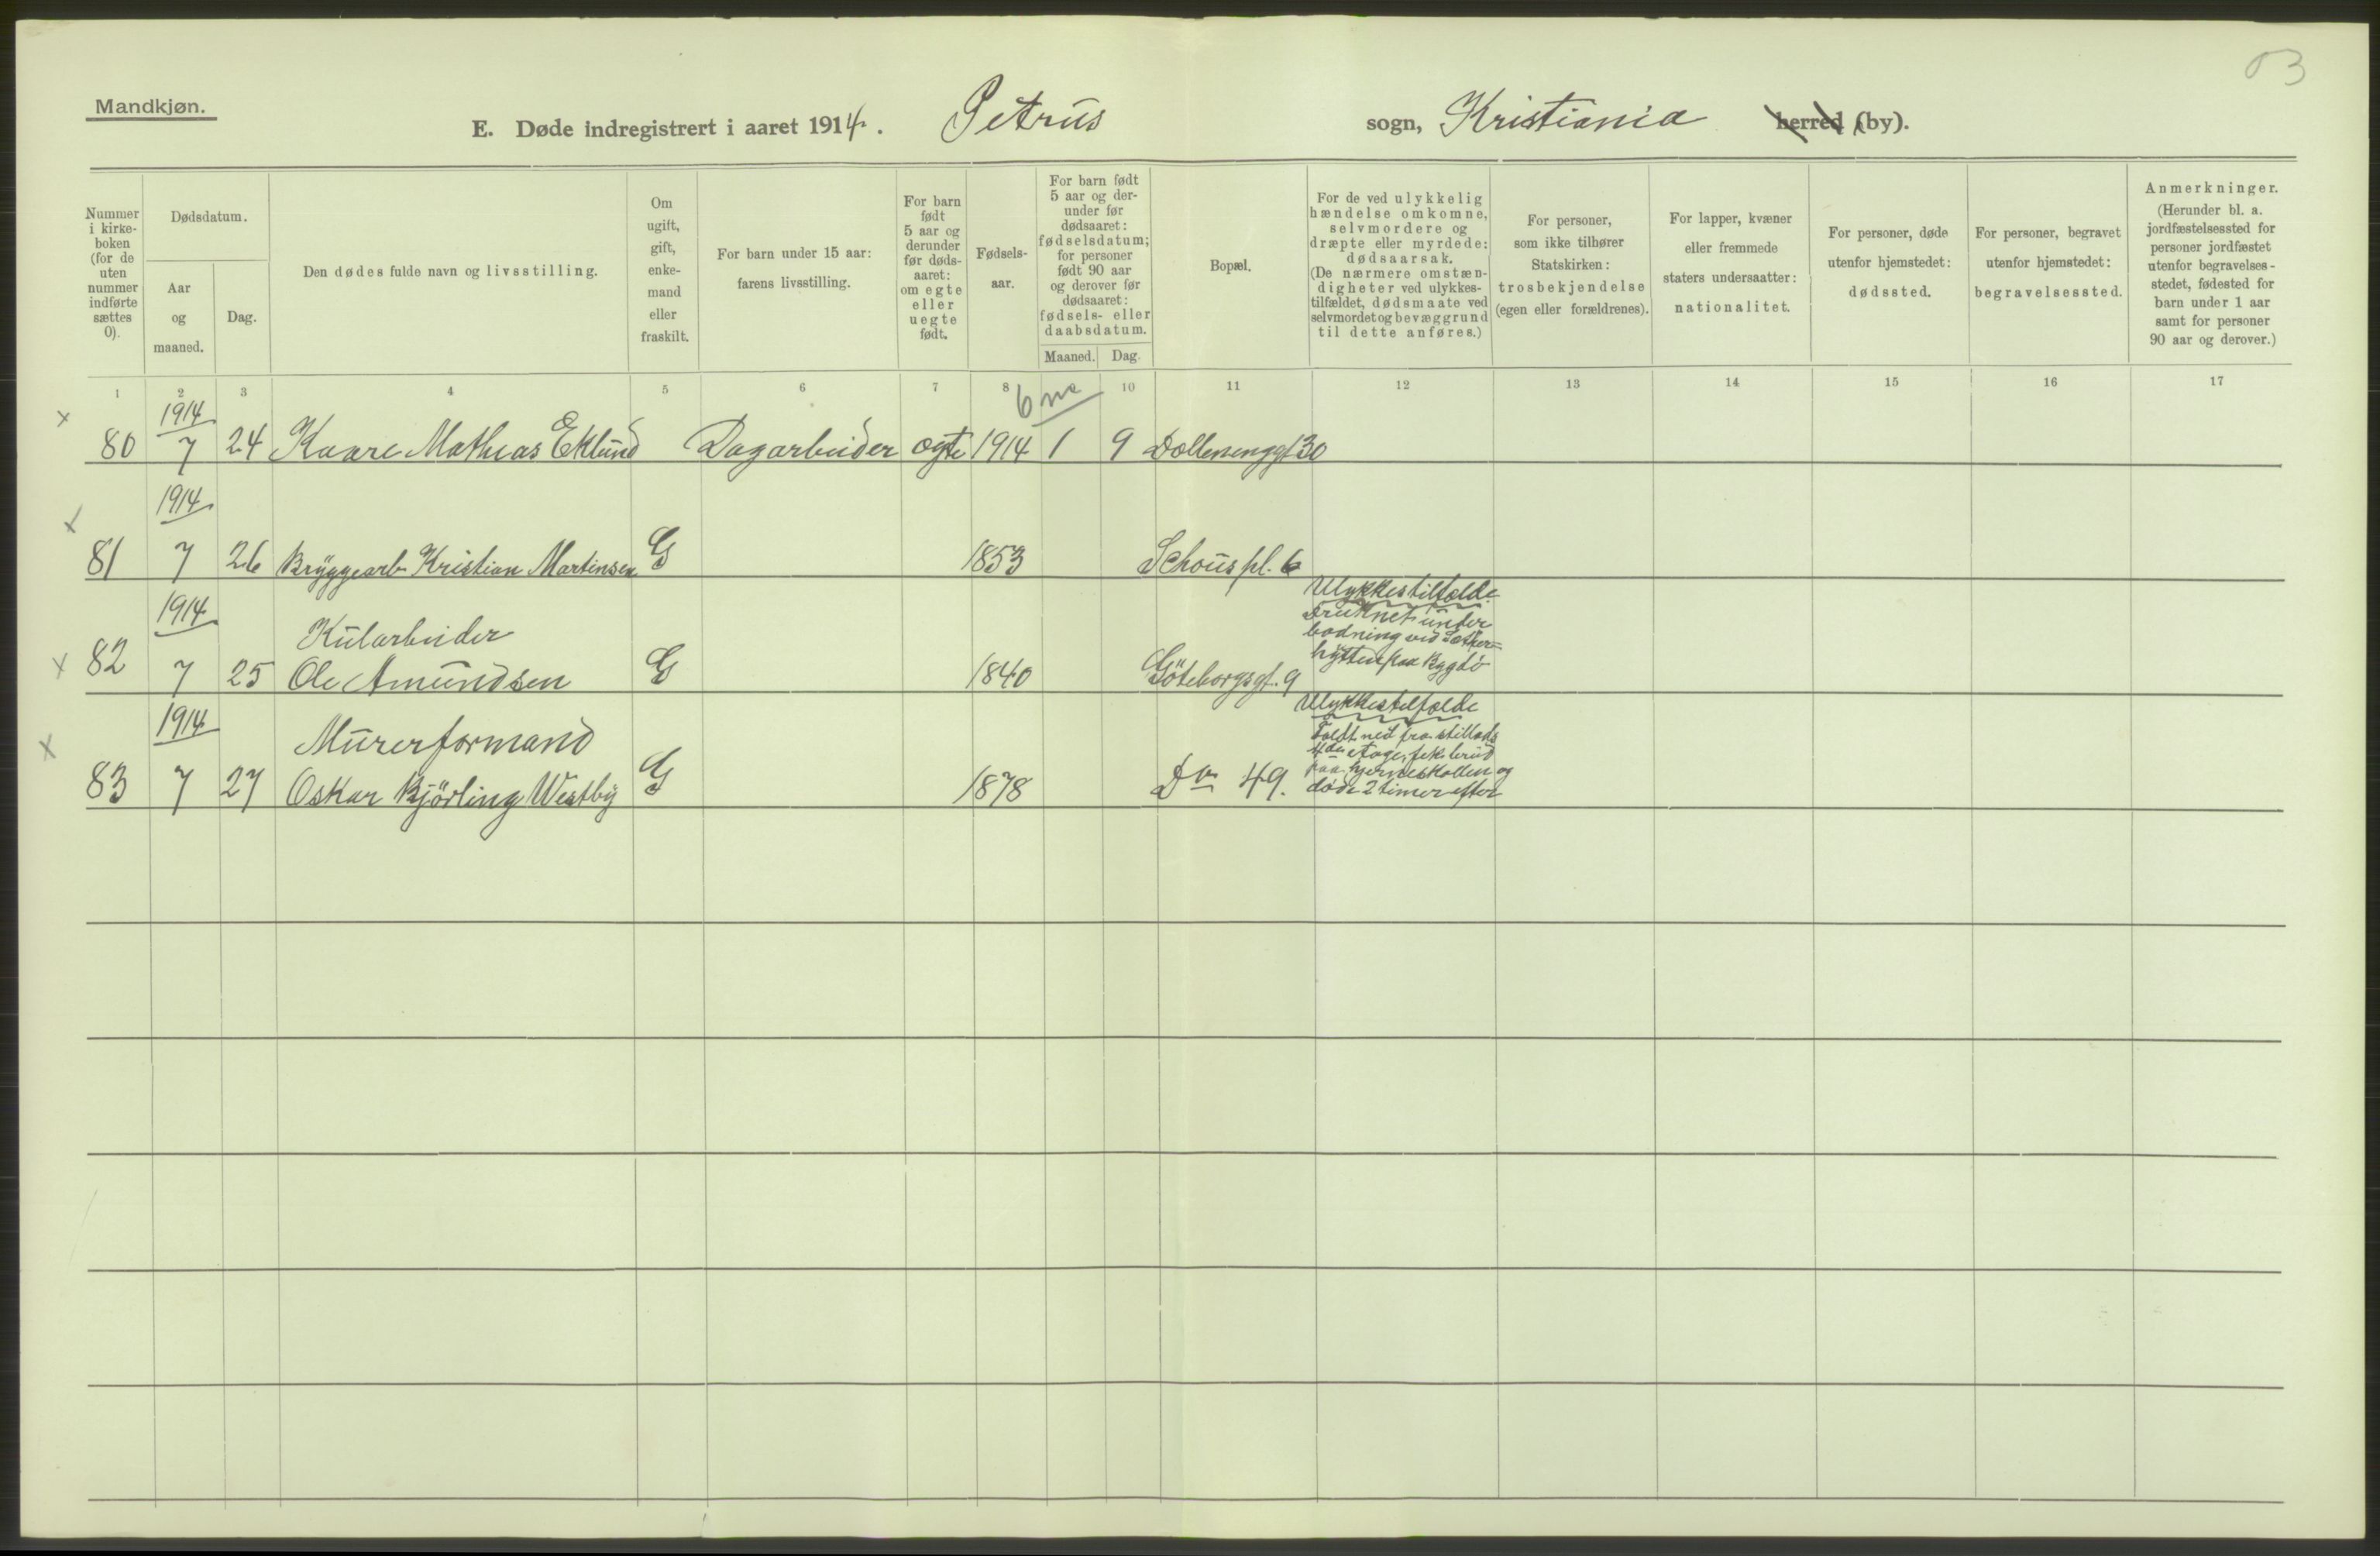 03
Mandkjøn.
E. Døde indregistrert i aaret 1914. Petrus sogn, Kristiania herred (by).
Nummer i kirkeboken (for de uten nummer indførte sættes 0).
Dødsdatum.
Aar og maaned.
Dag.
Den dødes fulde navn og livsstilling.
Om ugift, gift, enkemand eller fraskilt.
For barn under 15 aar: farens livsstilling.
For barn født 5 aar og derunder før dødsaaret: om egte eller uegte født.
Fødselsaar.
For barn født 5 aar og derunder før dødsaaret: fødselsdatum; for personer født 90 aar og derover før dødsaaret: fødsels- eller daabsdatum.
Maaned. Dag.
Bopæl.
For de ved ulykkelig hændelse omkomne, selvmordere og dræpte eller myrdede: dødsaarsak. (De nærmere omstændigheter ved ulykkestilfældet, dødsmaate ved selvmordet og bevæggrund til dette anføres.)
For personer, som ikke tilhører Statskirken: trosbekjendelse (egen eller forældrenes).
For lapper, kvæner eller fremmede staters undersaatter: nationalitet.
For personer, døde utenfor hjemstedet: dødssted.
For personer, begravet utenfor hjemstedet: begravelsessted.
Anmerkninger. (Herunder bl. a. jordfæstelsessted for personer jordfæstet utenfor begravelsesstedet, fødested for barn under 1 aar samt for personer 90 aar og derover.)
1 2 3 4 5 6 7 8 10 11 12 13 14 15 16 17
6 m
x 1914
80 7 24 Kaare Mathias Eklund Dagarbeider egte 1914 1 9 Dælenenggt 30
x 1914
81 7 26 Bryggearb Kristian Martinsen G 1853 Schous pl. 6
1914 Kularbeider
x 82 7 25 Ole Amundsen G 1840 Göteborgsgt. 9
Ulykkestilfælde
Druknet under
badning ved
hytten paa Bygdö
1914 Murerformand
x 83 7 27 Oskar Björling Westby G 1878 Do 49.
Ulykkestilfælde
Faldt ned fra stillads
4de etage, fik brud
paa hjerneskallen og
døde 2 timer efter